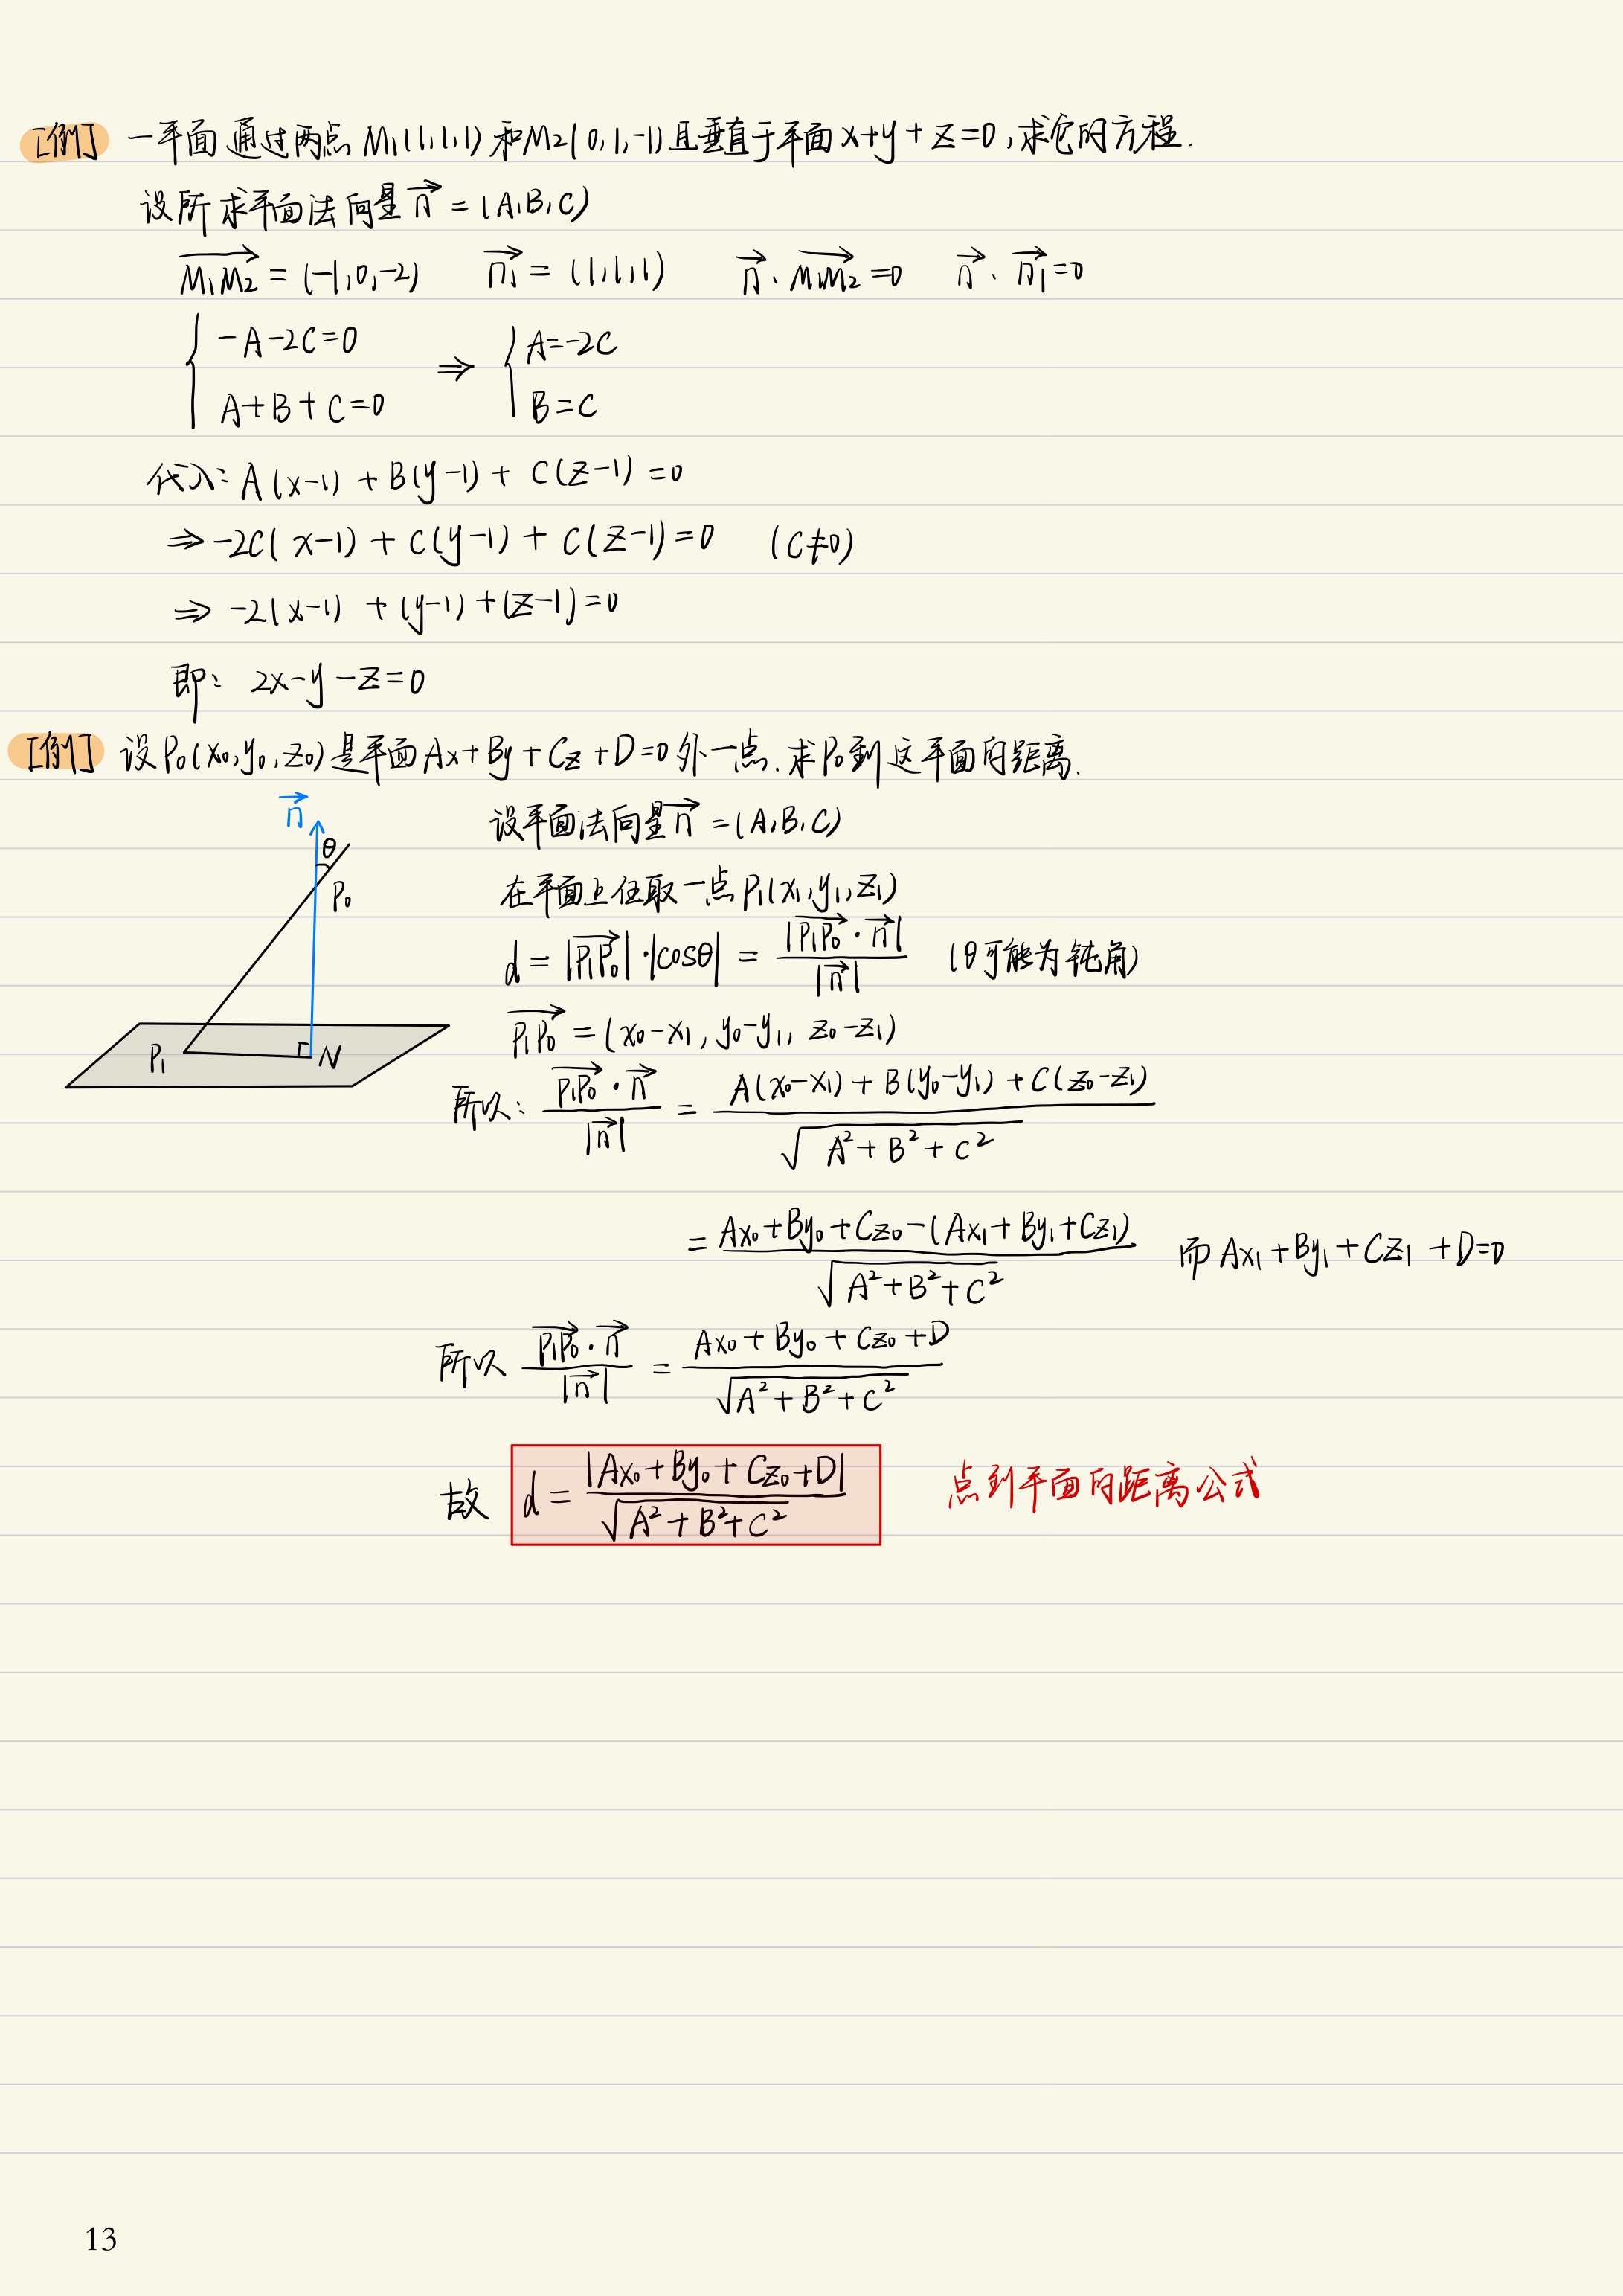 [例] 一平面通过两点 M₁(1,1,1) 和 M₂(0,1,-1) 且垂直于平面 x+y+z=0,求它的方程.
设所求平面法向量 n⃗ = (A,B,C)
M₁M₂⃗ = (-1,0,-2) n₁⃗ = (1,1,1) n⃗·M₁M₂⃗=0 n⃗·n₁⃗=0
{ -A-2C=0 ⇒ { A=-2C
A+B+C=0 B=C
代入: A(x-1)+B(y-1)+C(z-1)=0
⇒ -2C(x-1)+C(y-1)+C(z-1)=0 (C≠0)
⇒ -2(x-1)+(y-1)+(z-1)=0
即: 2x-y-z=0
[例] 设 P₀(x₀,y₀,z₀) 是平面 Ax+By+Cz+D=0 外一点.求P₀到这平面的距离.
n⃗
θ
P₀
P₁
N
设平面法向量 n⃗ = (A,B,C)
在平面上任取一点 P₁(x₁,y₁,z₁)
d = |P₁P₀⃗|·|cosθ| = |P₁P₀⃗·n⃗| / |n⃗| (θ可能为钝角)
P₁P₀⃗ = (x₀-x₁, y₀-y₁, z₀-z₁)
所以: P₁P₀⃗·n⃗ / |n⃗| = A(x₀-x₁)+B(y₀-y₁)+C(z₀-z₁) / √A²+B²+C²
= Ax₀+By₀+Cz₀-(Ax₁+By₁+Cz₁) / √A²+B²+C² 而 Ax₁+By₁+Cz₁+D=0
所以 P₁P₀⃗·n⃗ / |n⃗| = Ax₀+By₀+Cz₀+D / √A²+B²+C²
故 d = |Ax₀+By₀+Cz₀+D| / √A²+B²+C² 点到平面的距离公式
13